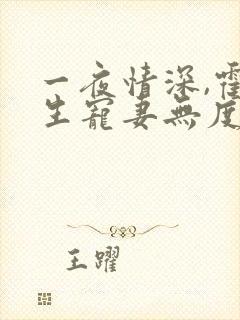 一夜情深,霍
生寵妻無度
王躍